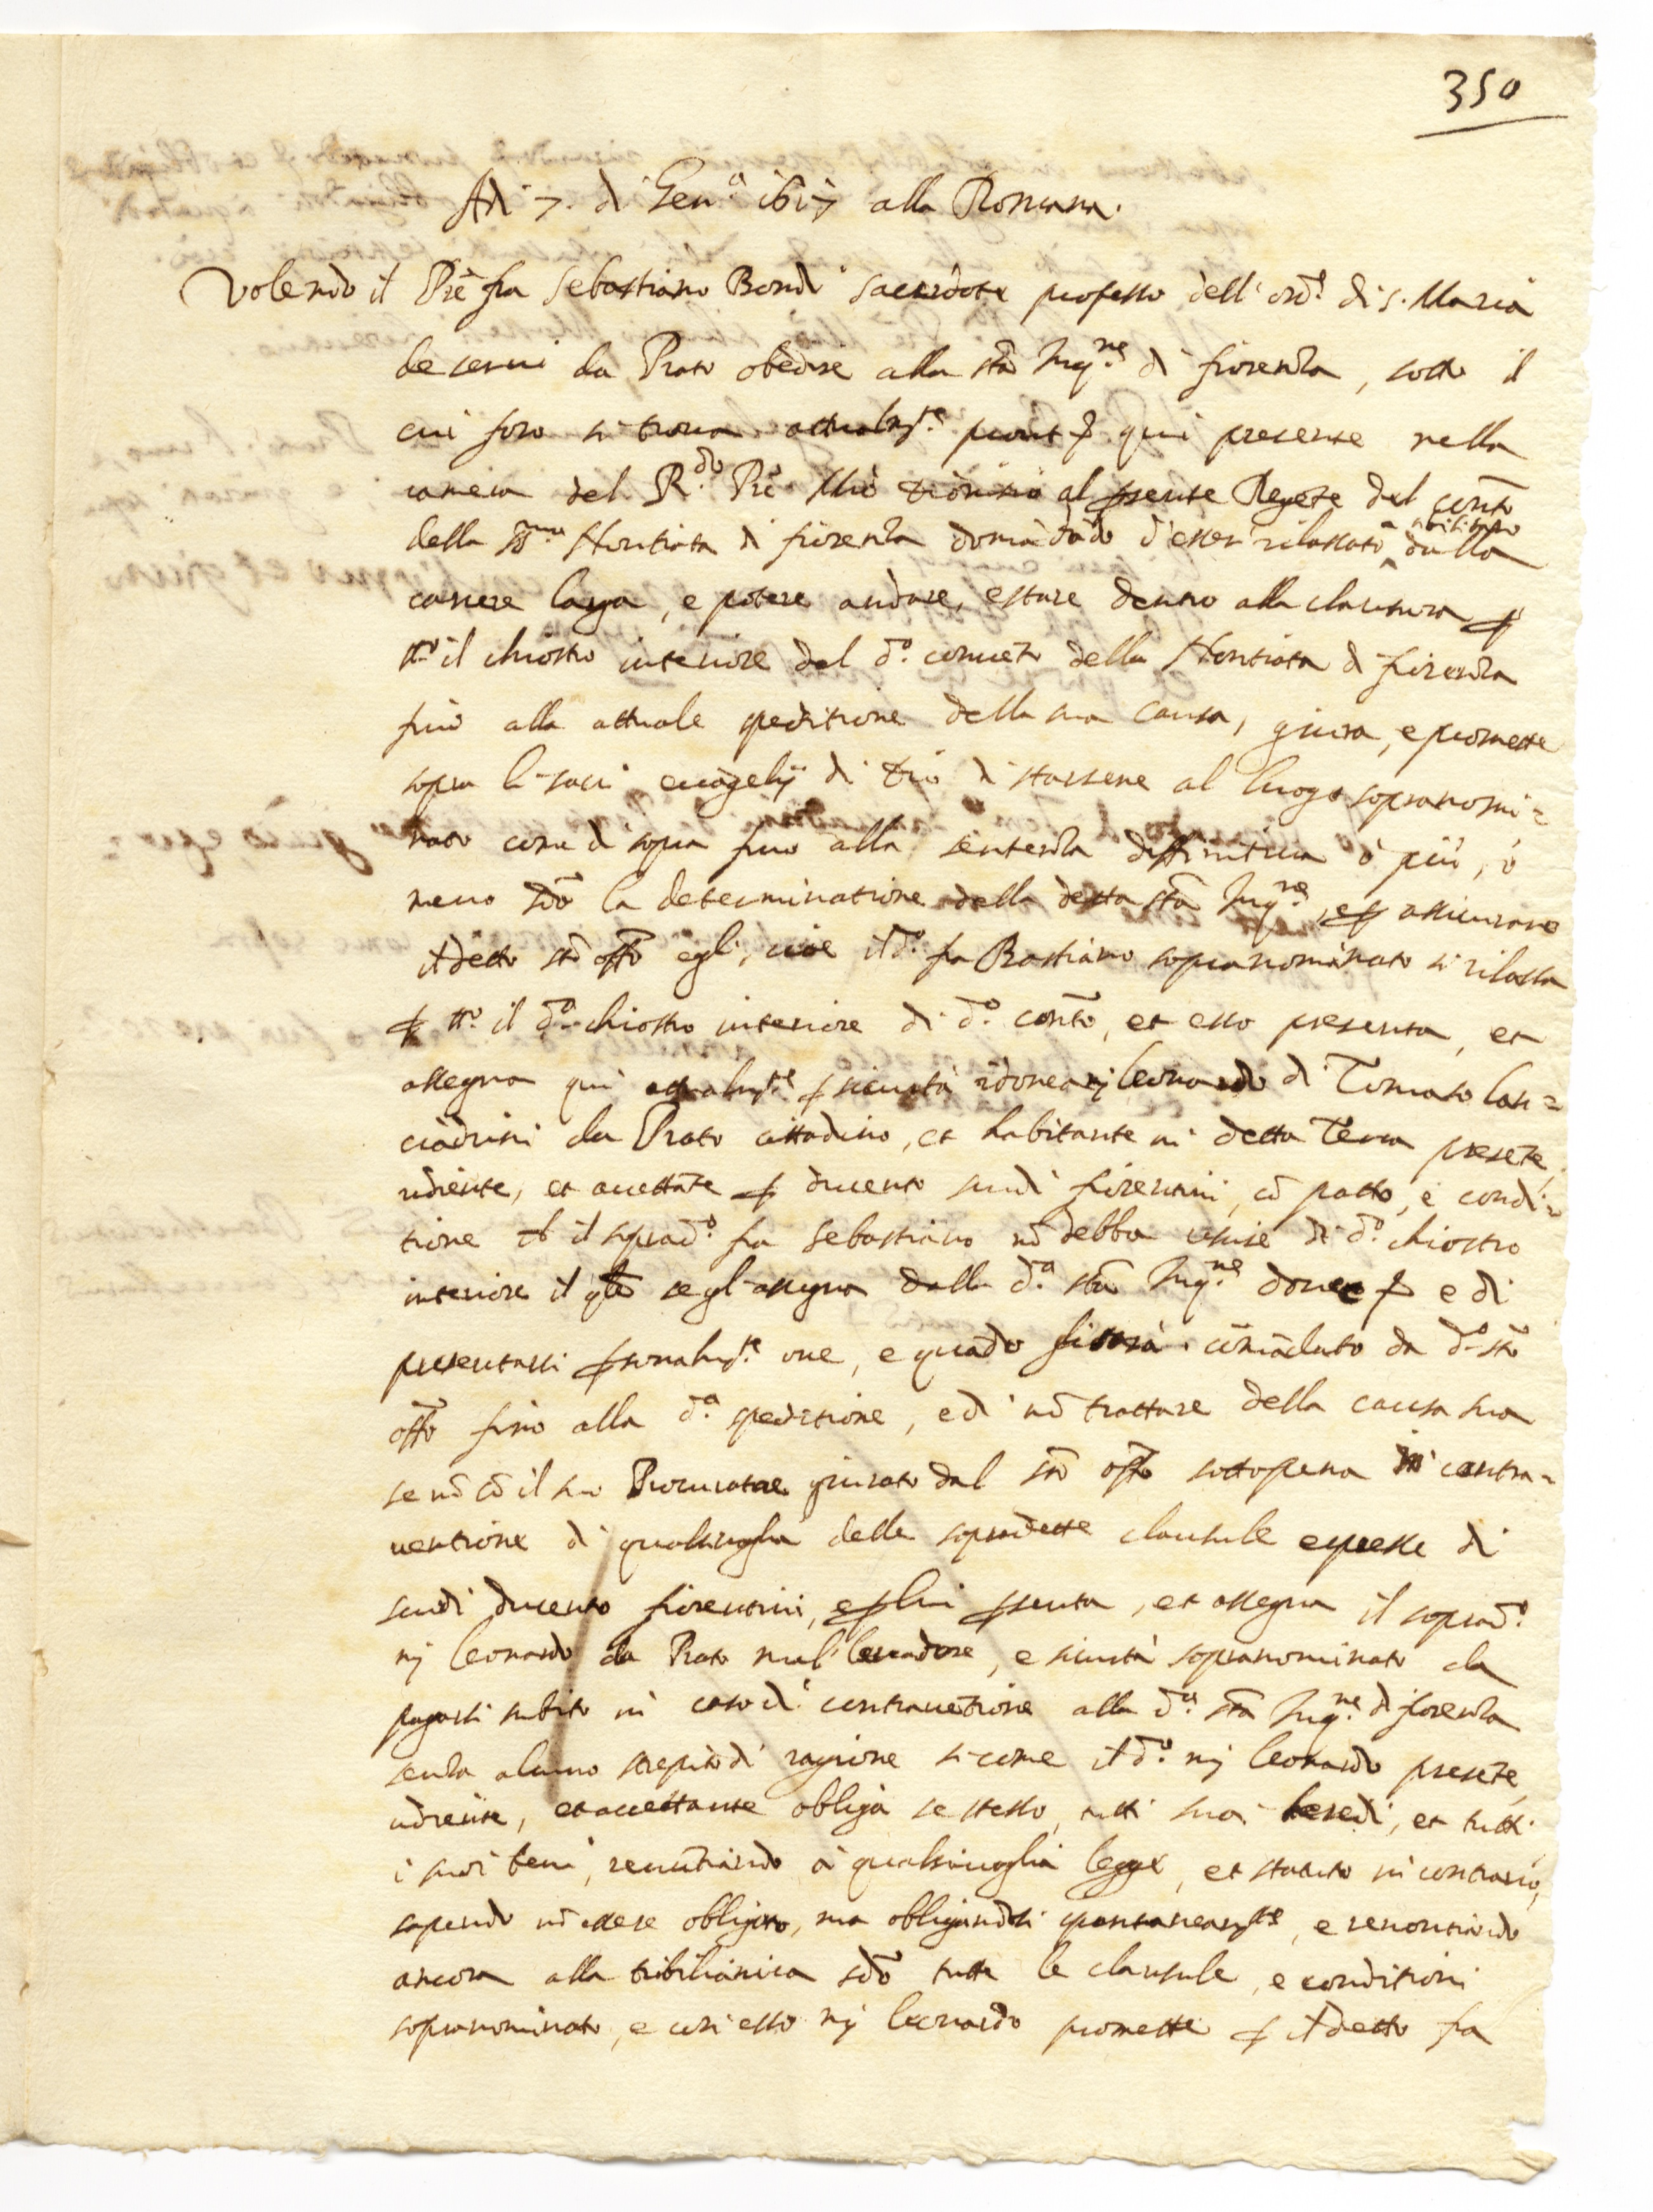 350
Adi 7. di Gen.o 1617 alla Romana.
Volendo il Prē fra Sebastiano Bondi sacerdote professo dell'ord.e di S. Maria
de servi da Prato obedire alla stā Inq.ne di fiorenza, sotto il
cui foro si trova attualm.te qui presente nella
camera del R.do Prē Mrō Dionisio al ꝑsente Regēte del convto
della SS.ma Nontiata di fiorenza domādādo d'esser rilassato abilitato dalla
carcere larga, e potere andare, e stare dentro alla clausura ꝑ
tt.o il chiostro interiore del d.o convēto della Nontiata di fiorenza
fino alla attuale speditione della sua causa, giura, e promette
sopra li sacri evāgelij di Dio di starsene al luogo sopranomi=
nato come di sopra fino alla sentenza diffinitiva ò più, ò
meno scdō la determinatione della detta stā Inq.ne, e ꝑ assicurare
il detto stō offō egli, cioè il d.o fra Bastiano sopranominato si rilassa
ꝑ tt.o il d.o chiostro interiore di d.o convto, et esso presenta, et
assegna qui attualm.te ꝑ sicurtà idonea mj Leonardo di Tomaso Lan=
ciādrini da Prato cittadino, et habitante in detta Terra presēte,
udiente, et accettāte ꝑ ducento scudi fiorentini, cō patto, e condi=
tione ch il soprad.o fra Sebastiano nō debba uscire di d.o chiostro
interiore il qle se gl'assegna dalla d.a stā Inq.ne e di
presentarsi ꝑsonalm.te ove, e quādo comādato da d.o stō
offō fino alla d.a speditione, e di nō trattare della causa sua
se nō cō il suo Procuratore giurato dal stō offō sottopena in contra=
ventione di qualsivoglia delle sopradette clausule espresse di
scudi ducento fiorentini, e ꝑ lui ꝑsenta, et assegna il soprad.o
mj Leonardo da Prato mal'levadore, e sicurtà sopranominato da
pagarsi subito in caso di contravētione alla d.a stā Inq.ne di fiorenza
senza alcuno strepito di ragione si come il d.o mj Leonardo presēte,
udiente, et accettante obliga se stesso, tutti sua heredi, et tutti
i suoi beni, renūtiando à qualsivoglia legge, et statuto in contrario,
sapendo nō essere obligato, ma obligandosi spontaneam.te, e renontiādo
ancora alla scdō tutte le clausule, e conditioni
sopranominate, e così esso mj Leonardo promette ꝑ il detto fra